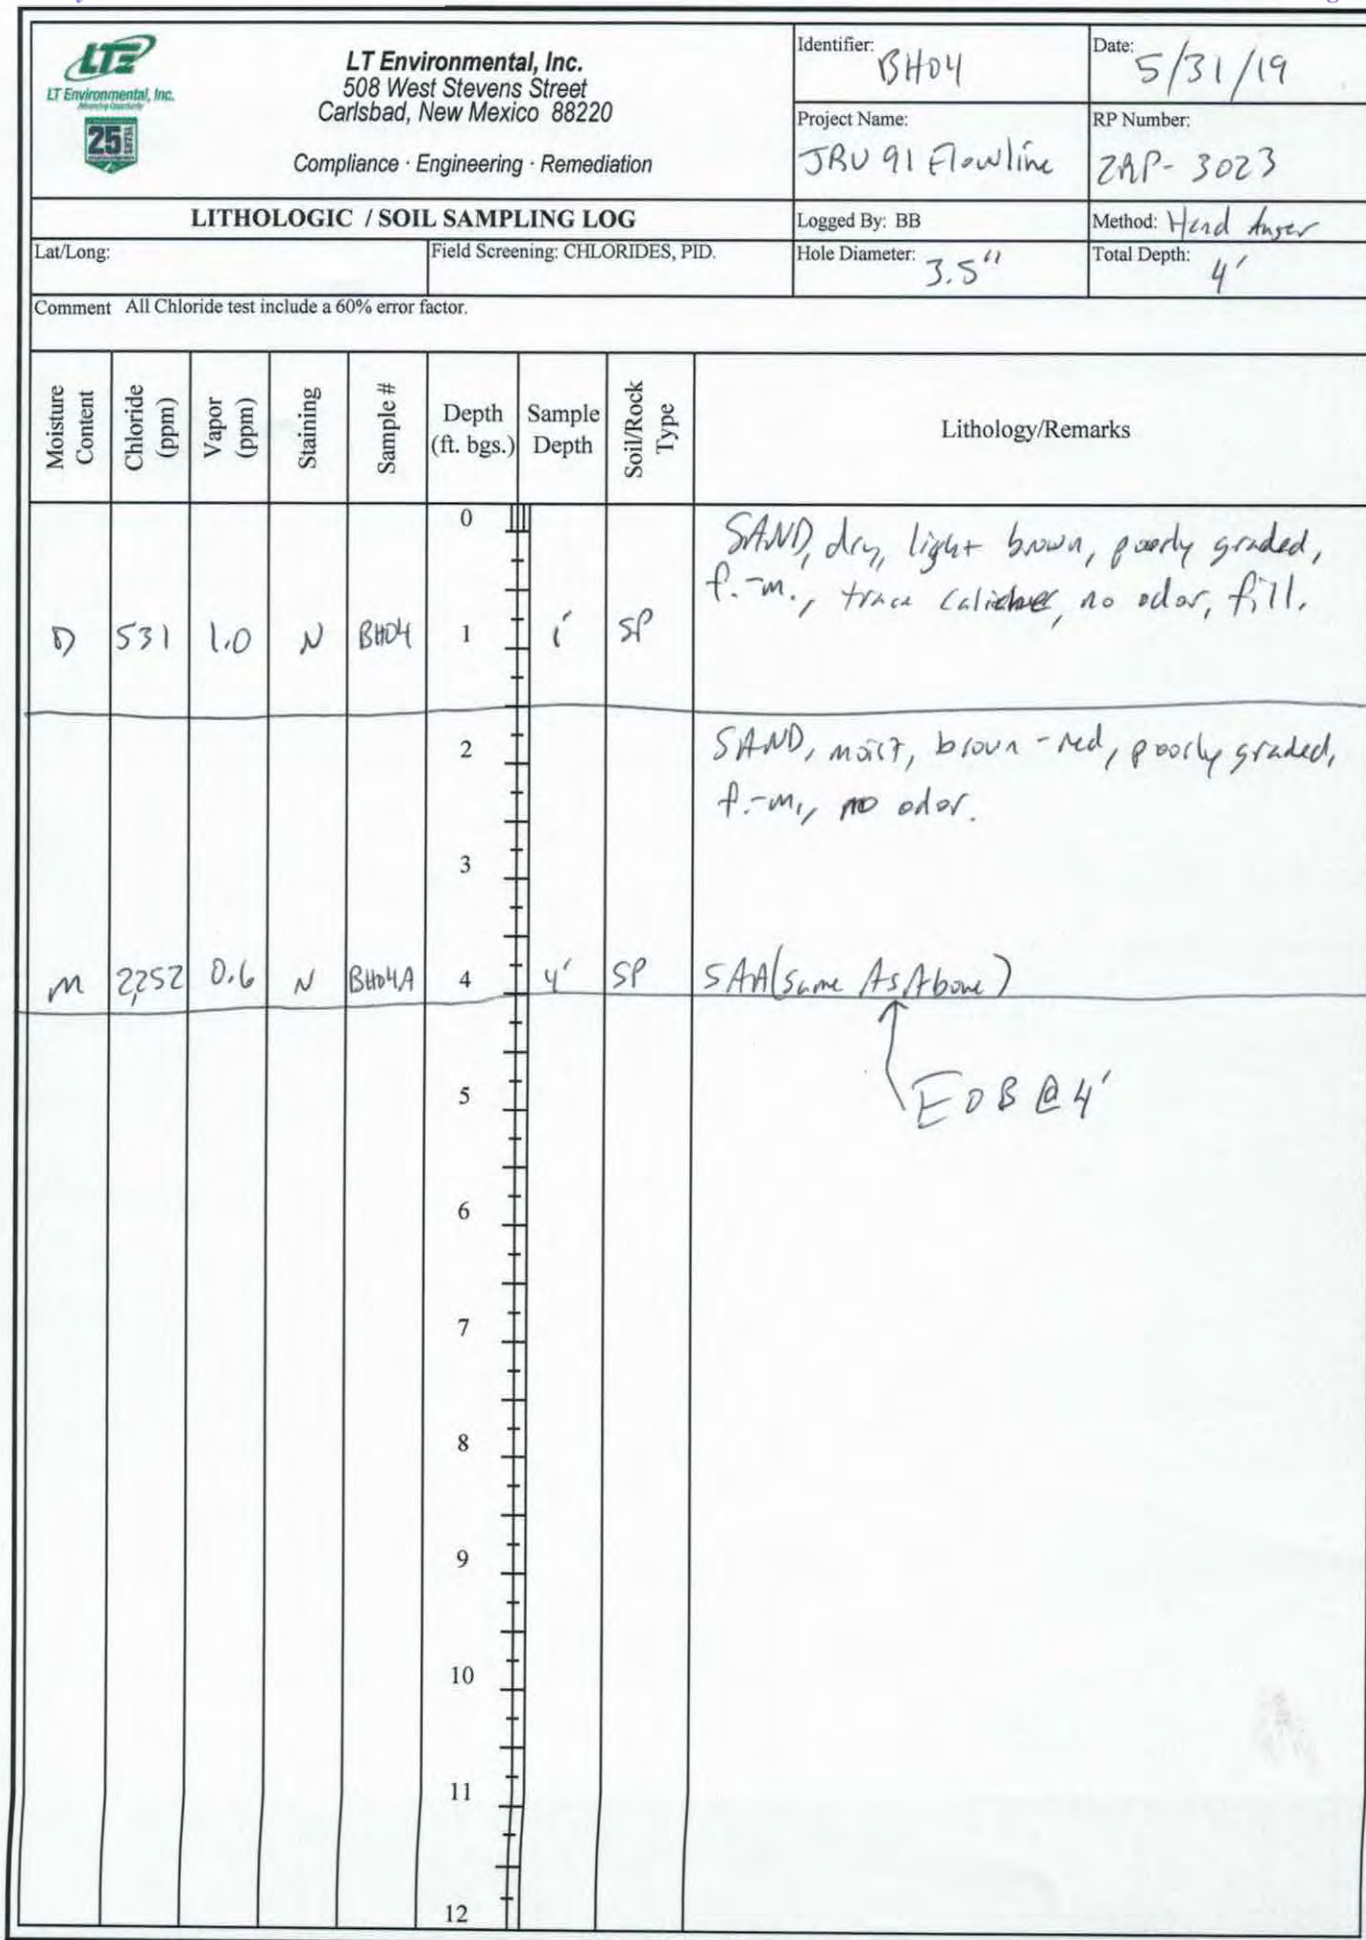 LTE
LT Environmental, Inc.
25 YEARS
LT Environmental, Inc.
508 West Stevens Street
Carlsbad, New Mexico 88220
Compliance · Engineering · Remediation
Identifier: BH04
Date: 5/31/19
Project Name: JRU 91 Flowline
RP Number: 2RP-3023
LITHOLOGIC / SOIL SAMPLING LOG
Logged By: BB
Method: Hand Auger
Lat/Long:
Field Screening: CHLORIDES, PID.
Hole Diameter: 3.5"
Total Depth: 4'
Comment All Chloride test include a 60% error factor.
Moisture Content
Chloride (ppm)
Vapor (ppm)
Staining
Sample #
Depth (ft. bgs.)
Sample Depth
Soil/Rock Type
Lithology/Remarks
0
SAND, dry, light brown, poorly graded,
f.-m., trace caliche, no odor, fill.
D 531 1.0 N BH04 1 1' SP
2
SAND, moist, brown-red, poorly graded,
f.-m., no odor.
3
M 2,252 0.6 N BH04A 4 4' SP SAA (Same As Above)
5
EOB @ 4'
6
7
8
9
10
11
12